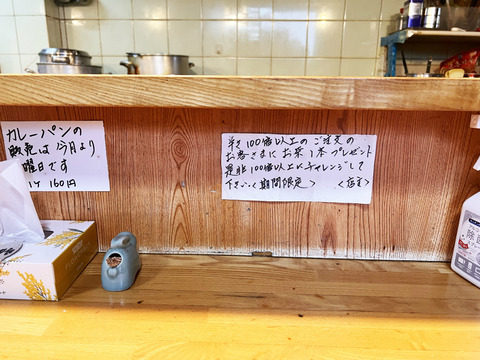 カレーパンの
販売は今月より
曜日です
1ケ 160円
辛さ100倍以上のご注文の
お客さまにお茶1本プレゼント
是非100倍以上にチャレンジして
下さい<期間限定> <店主>
除菌